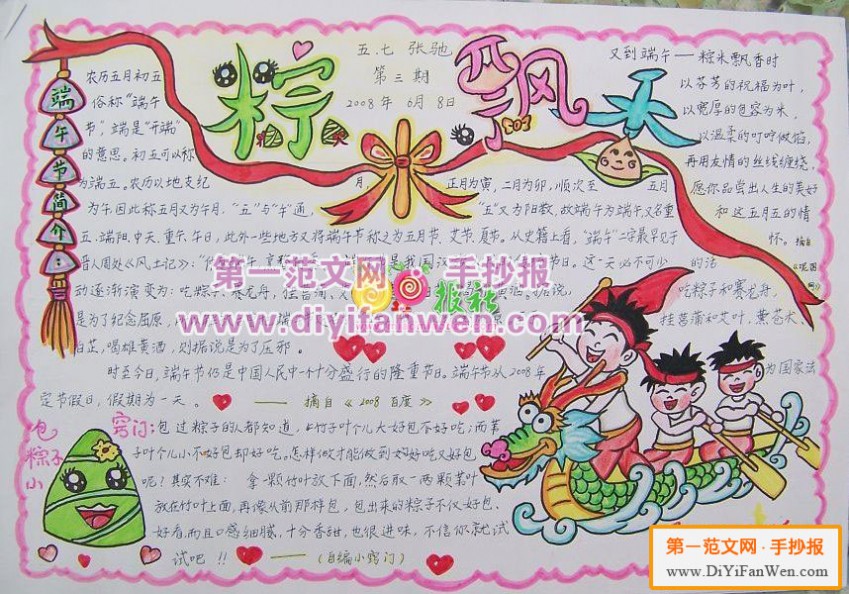 五.七 张驰
第三期
2008年 6月8日
粽米飘香
端午节简介:
农历五月初五
俗称"端午
节",端是"开端"
的意思。初五可以称
为端五。农历以地支纪
月,正月为寅,二月为卯,顺次至五月
为午因此称五月又为午月,"五"与"午"通,
"五"又为阳数,故端午为端午又名重
五、端阳、中天、重午、午日,此外一些地方又将端午节称之为五月节、艾节、夏节。从史籍上看,"端午"二字最早见于
晋人周处《风土记》:
是我国汉
节日。这一天必不可少的活
动逐渐演变为:吃粽子、赛龙舟、挂菖蒲、
据说,吃粽子和赛龙舟,
是为了纪念屈原,
挂菖蒲和艾叶,熏苍术、
白芷,喝雄黄酒,则据说是为了压邪。
时至今日,端午节仍是中国人民中一个十分盛行的隆重节日。端午节从2008年为国家法
定节假日,假期为一天。
——摘自《2008百度》
又到端午——粽米飘香时
以芬芳的祝福为叶,
以宽厚的包容为米,
以温柔的叮咛做馅,
再用友情的丝线缠绕,
愿你品尝出人生的美好
和这五月五的情
怀。摘自
包粽子小窍门:
包过粽子的人都知道,
竹子叶个儿大好包不好吃;而苇
子叶个儿小不好包却好吃。怎样做才能做到好吃又好包
呢?其实不难:拿一颗竹叶放下面,然后取一两颗苇叶
放在竹叶上面,再像从前那样包,包出来的粽子不仅好包、
好看,而且口感细腻,十分香甜,也很进味,不信你就试
试吧!!
——(自编小窍门)
第一范文网 手抄报
报社
www.diyifanwen.com
第一范文网·手抄报
www.DiYiFanWen.com